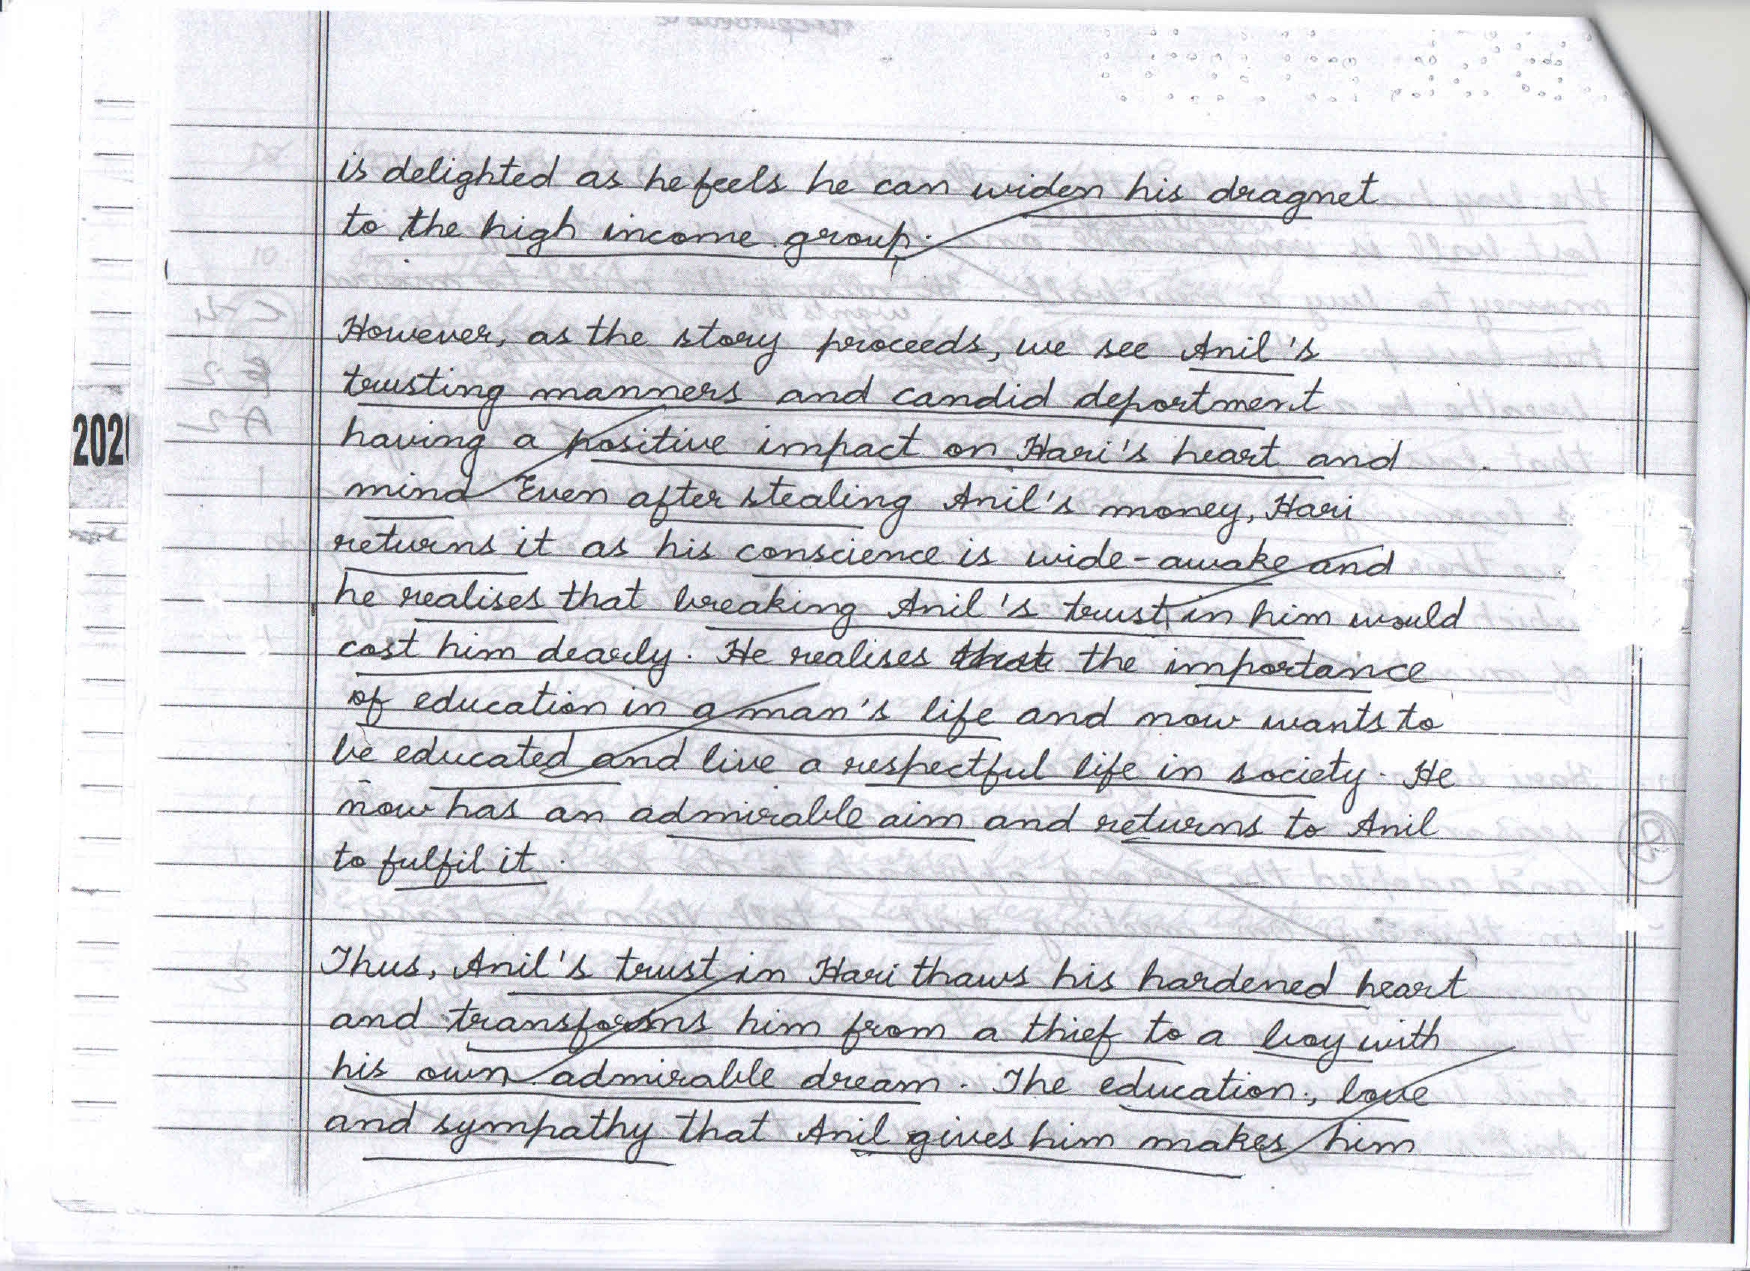 is delighted as he feels he can widen his dragnet
to the high income group.
However, as the story proceeds, we see Anil's
trusting manners and candid deportment
having a positive impact on Hari's heart and
mind Even after stealing Anil's money, Hari
returns it as his conscience is wide-awake and
he realises that breaking Anil's trust in him would
cost him dearly. He realises that the importance
of education in a man's life and now wants to
be educated and live a respectful life in society. He
now has an admirable aim and returns to Anil
to fulfil it.
Thus, Anil's trust in Hari thaws his hardened heart
and transforms him from a thief to a boy with
his own admirable dream. The education, love
and sympathy that Anil gives him makes him
202